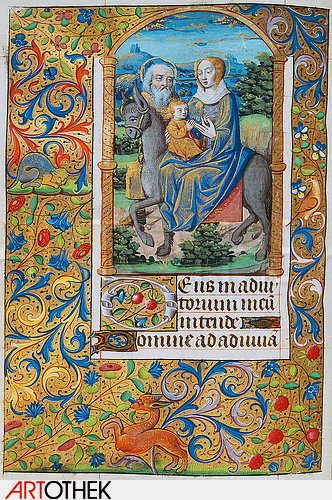 Deus in adiu
torium meū
intende
Domine ad adiuuā
ARTOTHEK